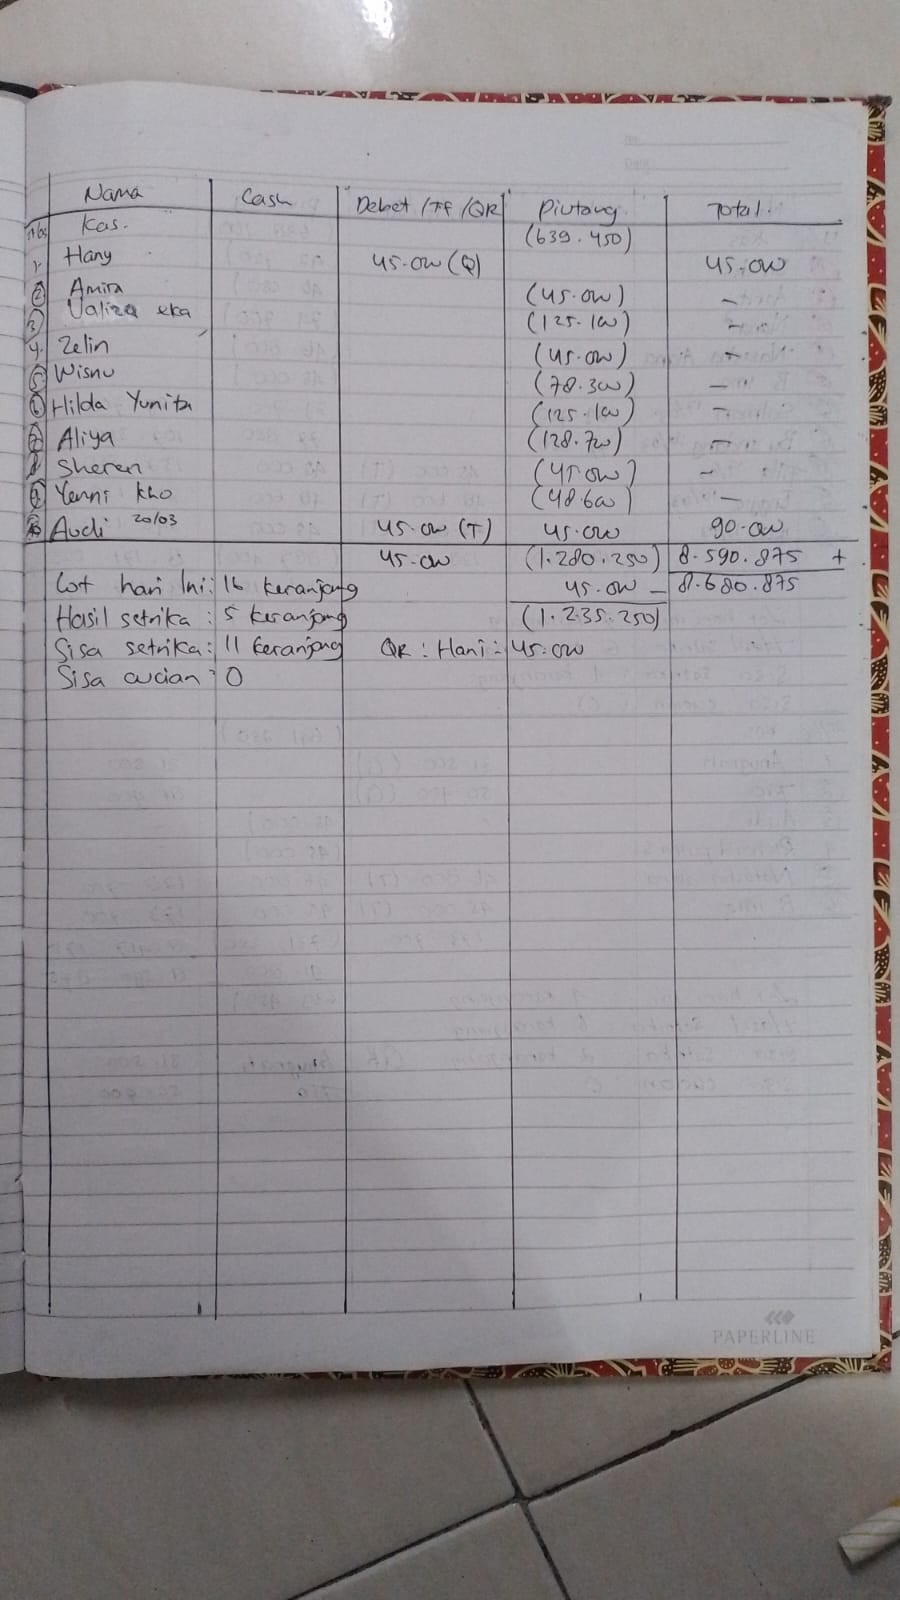 Nama Cash Debet /TF /QR Piutang Total.
Kas. (639.450)
1. Hany 45.000 (Q) 45.000
2 Amira (45.000) -
3 Valiza eka (125.100) -
4. Zelin (45.000) -
5 Wisnu (78.300) -
6 Hilda Yunita (125.100) -
7 Aliya (128.700) -
8 Sheren (45.000) -
9 Yenni kho (48.600) -
10 Audi 20/03 45.000 (T) 45.000 90.000
45.000 (1.280.250) 8.590.875 +
Cot hari Ini: 16 keranjang 45.000 - 8.680.875
Hasil setrika : 5 keranjang (1.235.250)
Sisa setrika: 11 keranjang QR : Hani : 45.000
Sisa cucian : 0
PAPERLINE